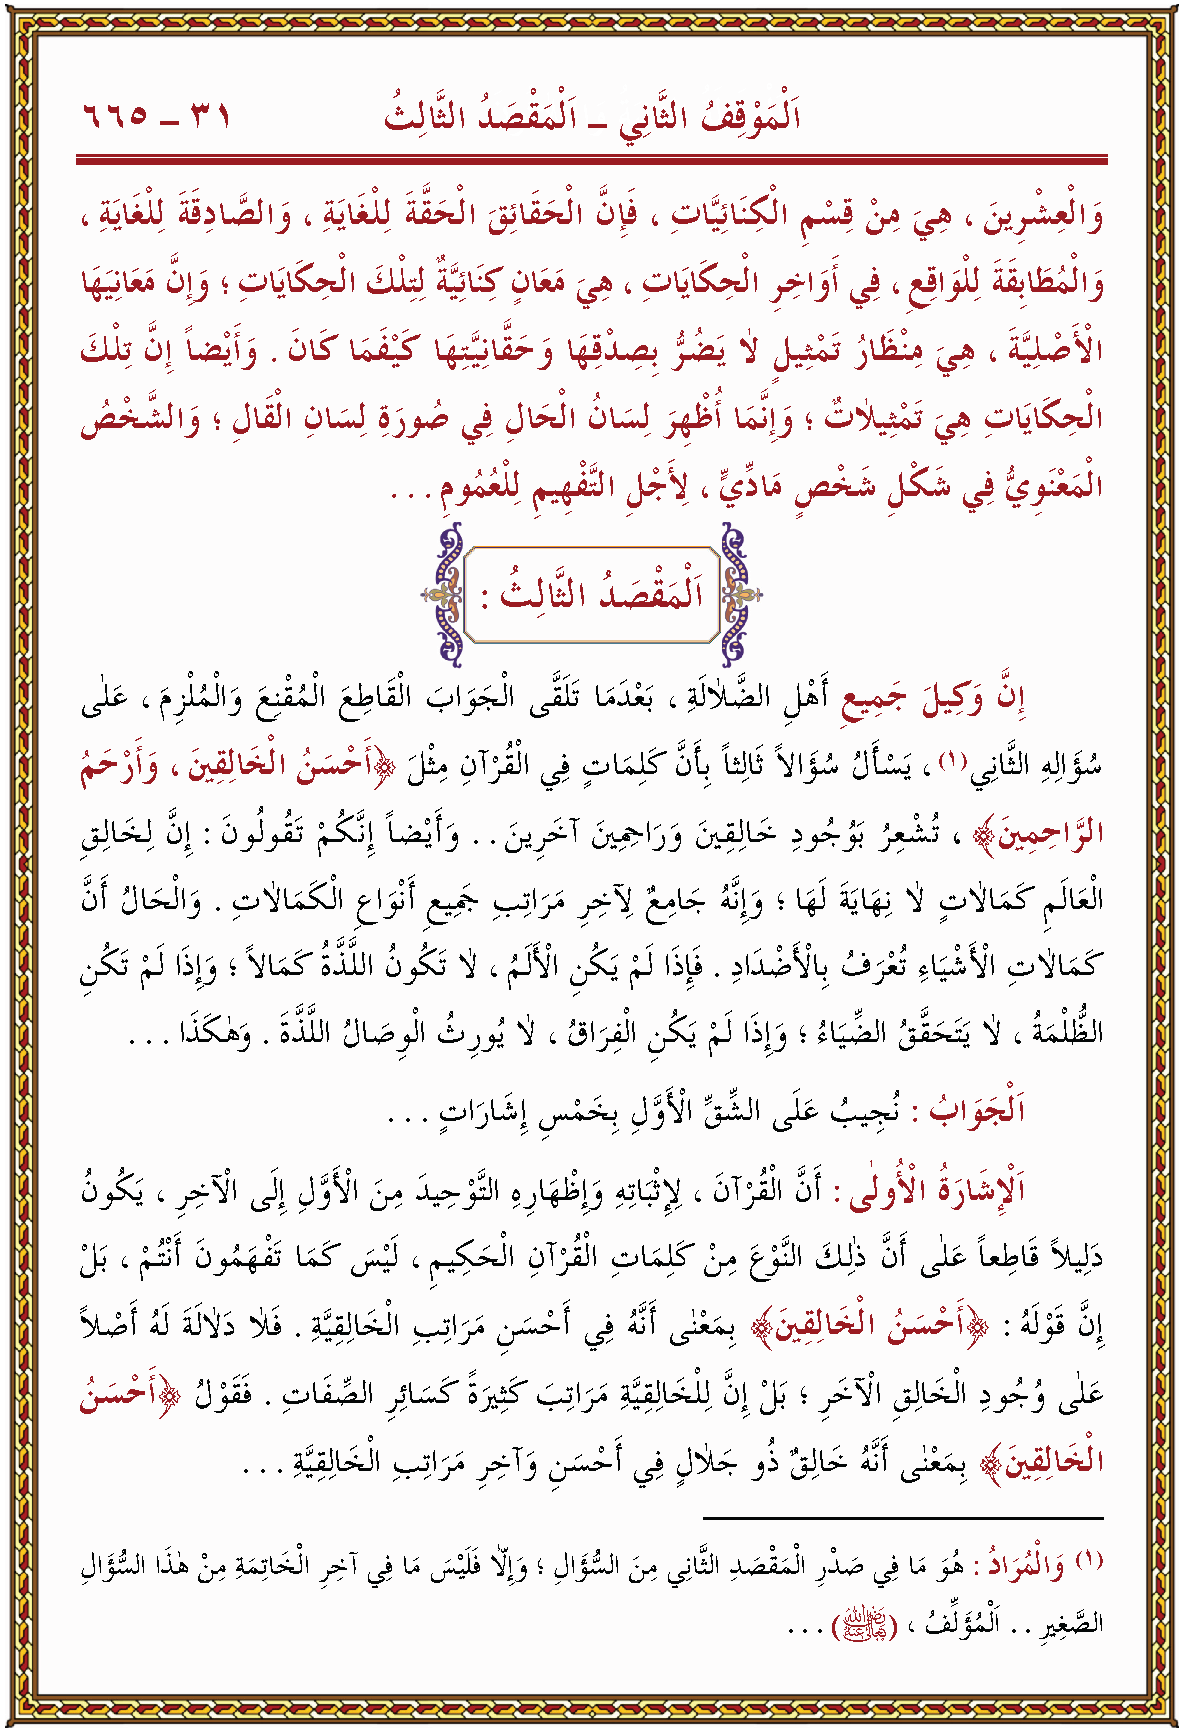 اَلْمَوْقِفُ الثَّانِي ــ اَلْمَقْصَدُ الثَّالِثُ ٣١ ــ ٦٦٥
وَالْعِشْرِينَ ، هِيَ مِنْ قِسْمِ الْكِنَائِيَّاتِ ، فَإِنَّ الْحَقَائِقَ الْحَقَّةَ لِلْغَايَةِ ، وَالصَّادِقَةَ لِلْغَايَةِ ،
وَالْمُطَابِقَةَ لِلْوَاقِعِ ، فِي أَوَاخِرِ الْحِكَايَاتِ ، هِيَ مَعَانٍ كِنَائِيَّةٌ لِتِلْكَ الْحِكَايَاتِ ؛ وَإِنَّ مَعَانِيَهَا
الْأَصْلِيَّةَ ، هِيَ مِنْظَارُ تَمْثِيلٍ لَا يَضُرُّ بِصِدْقِهَا وَحَقَّانِيَّتِهَا كَيْفَمَا كَانَ . وَأَيْضاً إِنَّ تِلْكَ
الْحِكَايَاتِ هِيَ تَمْثِيلَاتٌ ؛ وَإِنَّمَا أُظْهِرَ لِسَانُ الْحَالِ فِي صُورَةِ لِسَانِ الْقَالِ ؛ وَالشَّخْصُ
الْمَعْنَوِيُّ فِي شَكْلِ شَخْصٍ مَادِّيٍّ ، لِأَجْلِ التَّفْهِيمِ لِلْعُمُومِ . . .
اَلْمَقْصَدُ الثَّالِثُ :
إِنَّ وَكِيلَ جَمِيعِ أَهْلِ الضَّلَالَةِ ، بَعْدَمَا تَلَقَّى الْجَوَابَ الْقَاطِعَ الْمُقْنِعَ وَالْمُلْزِمَ ، عَلَى
سُؤَالِهِ الثَّانِي(١) ، يَسْأَلُ سُؤَالاً ثَالِثاً بِأَنَّ كَلِمَاتٍ فِي الْقُرْآنِ مِثْلَ ﴿أَحْسَنُ الْخَالِقِينَ ، وَأَرْحَمُ
الرَّاحِمِينَ﴾ ، تُشْعِرُ بُوُجُودِ خَالِقِينَ وَرَاحِمِينَ آخَرِينَ . . وَأَيْضاً إِنَّكُمْ تَقُولُونَ : إِنَّ لِخَالِقِ
الْعَالَمِ كَمَالَاتٍ لَا نِهَايَةَ لَهَا ؛ وَإِنَّهُ جَامِعٌ لِآخِرِ مَرَاتِبِ جَمِيعِ أَنْوَاعِ الْكَمَالَاتِ . وَالْحَالُ أَنَّ
كَمَالَاتِ الْأَشْيَاءِ تُعْرَفُ بِالْأَضْدَادِ . فَإِذَا لَمْ يَكُنِ الْأَلَمُ ، لَا تَكُونُ اللَّذَّةُ كَمَالاً ؛ وَإِذَا لَمْ تَكُنِ
الظُّلْمَةُ ، لَا يَتَحَقَّقُ الضِّيَاءُ ؛ وَإِذَا لَمْ يَكُنِ الْفِرَاقُ ، لَا يُورِثُ الْوِصَالُ اللَّذَّةَ . وَهٰكَذَا . . .
اَلْجَوَابُ : نُجِيبُ عَلَى الشِّقِّ الْأَوَّلِ بِخَمْسِ إِشَارَاتٍ . . .
اَلْإِشَارَةُ الْأُولٰى : أَنَّ الْقُرْآنَ ، لِإِثْبَاتِهِ وَإِظْهَارِهِ التَّوْحِيدَ مِنَ الْأَوَّلِ إِلَى الْآخِرِ ، يَكُونُ
دَلِيلاً قَاطِعاً عَلَى أَنَّ ذٰلِكَ النَّوْعَ مِنْ كَلِمَاتِ الْقُرْآنِ الْحَكِيمِ ، لَيْسَ كَمَا تَفْهَمُونَ أَنْتُمْ ، بَلْ
إِنَّ قَوْلَهُ : ﴿أَحْسَنُ الْخَالِقِينَ﴾ بِمَعْنٰى أَنَّهُ فِي أَحْسَنِ مَرَاتِبِ الْخَالِقِيَّةِ . فَلَا دَلَالَةَ لَهُ أَصْلاً
عَلَى وُجُودِ الْخَالِقِ الْآخَرِ ؛ بَلْ إِنَّ لِلْخَالِقِيَّةِ مَرَاتِبَ كَثِيرَةً كَسَائِرِ الصِّفَاتِ . فَقَوْلُ ﴿أَحْسَنُ
الْخَالِقِينَ﴾ بِمَعْنٰى أَنَّهُ خَالِقٌ ذُو جَلَالٍ فِي أَحْسَنِ وَآخِرِ مَرَاتِبِ الْخَالِقِيَّةِ . . .
(١) وَالْمُرَادُ : هُوَ مَا فِي صَدْرِ الْمَقْصَدِ الثَّانِي مِنَ السُّؤَالِ ؛ وَإِلَّا فَلَيْسَ مَا فِي آخِرِ الْخَاتِمَةِ مِنْ هٰذَا السُّؤَالِ
الصَّغِيرِ . . اَلْمُؤَلِّفُ ، (رَضِيَ اللهُ تَعَالَى عَنْهُ) . . .